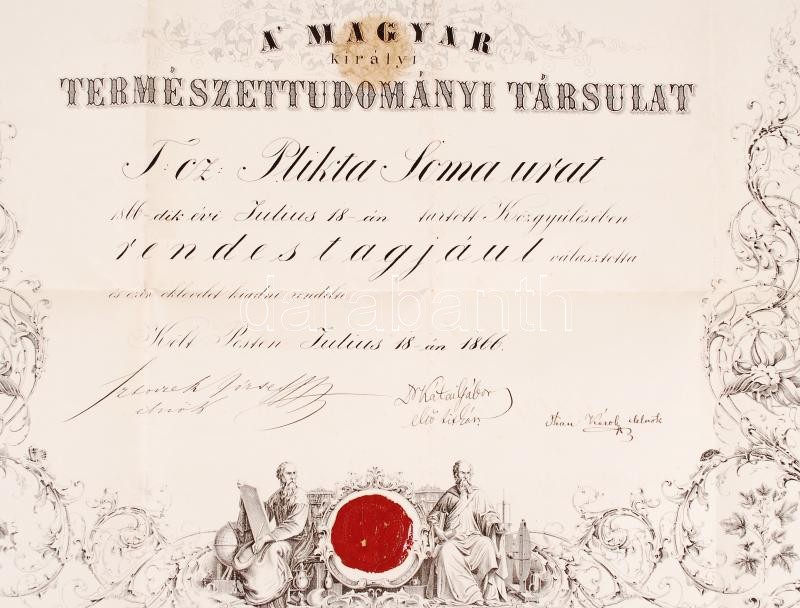 A' MAGYAR
királyi
TERMÉSZETTUDOMÁNYI TÁRSULAT
T: cz: Plikta Soma urat
1866-dik évi Julius 18-án tartott Közgyülésében
rendes tagjául választotta
és ezen oklevelet kiadni rendelte
darabanth
Kelt Pesten Julius 18-án 1866.
Sztoczek József
elnök
Dr Kátai Gábor
első titkár
Than Károly alelnök